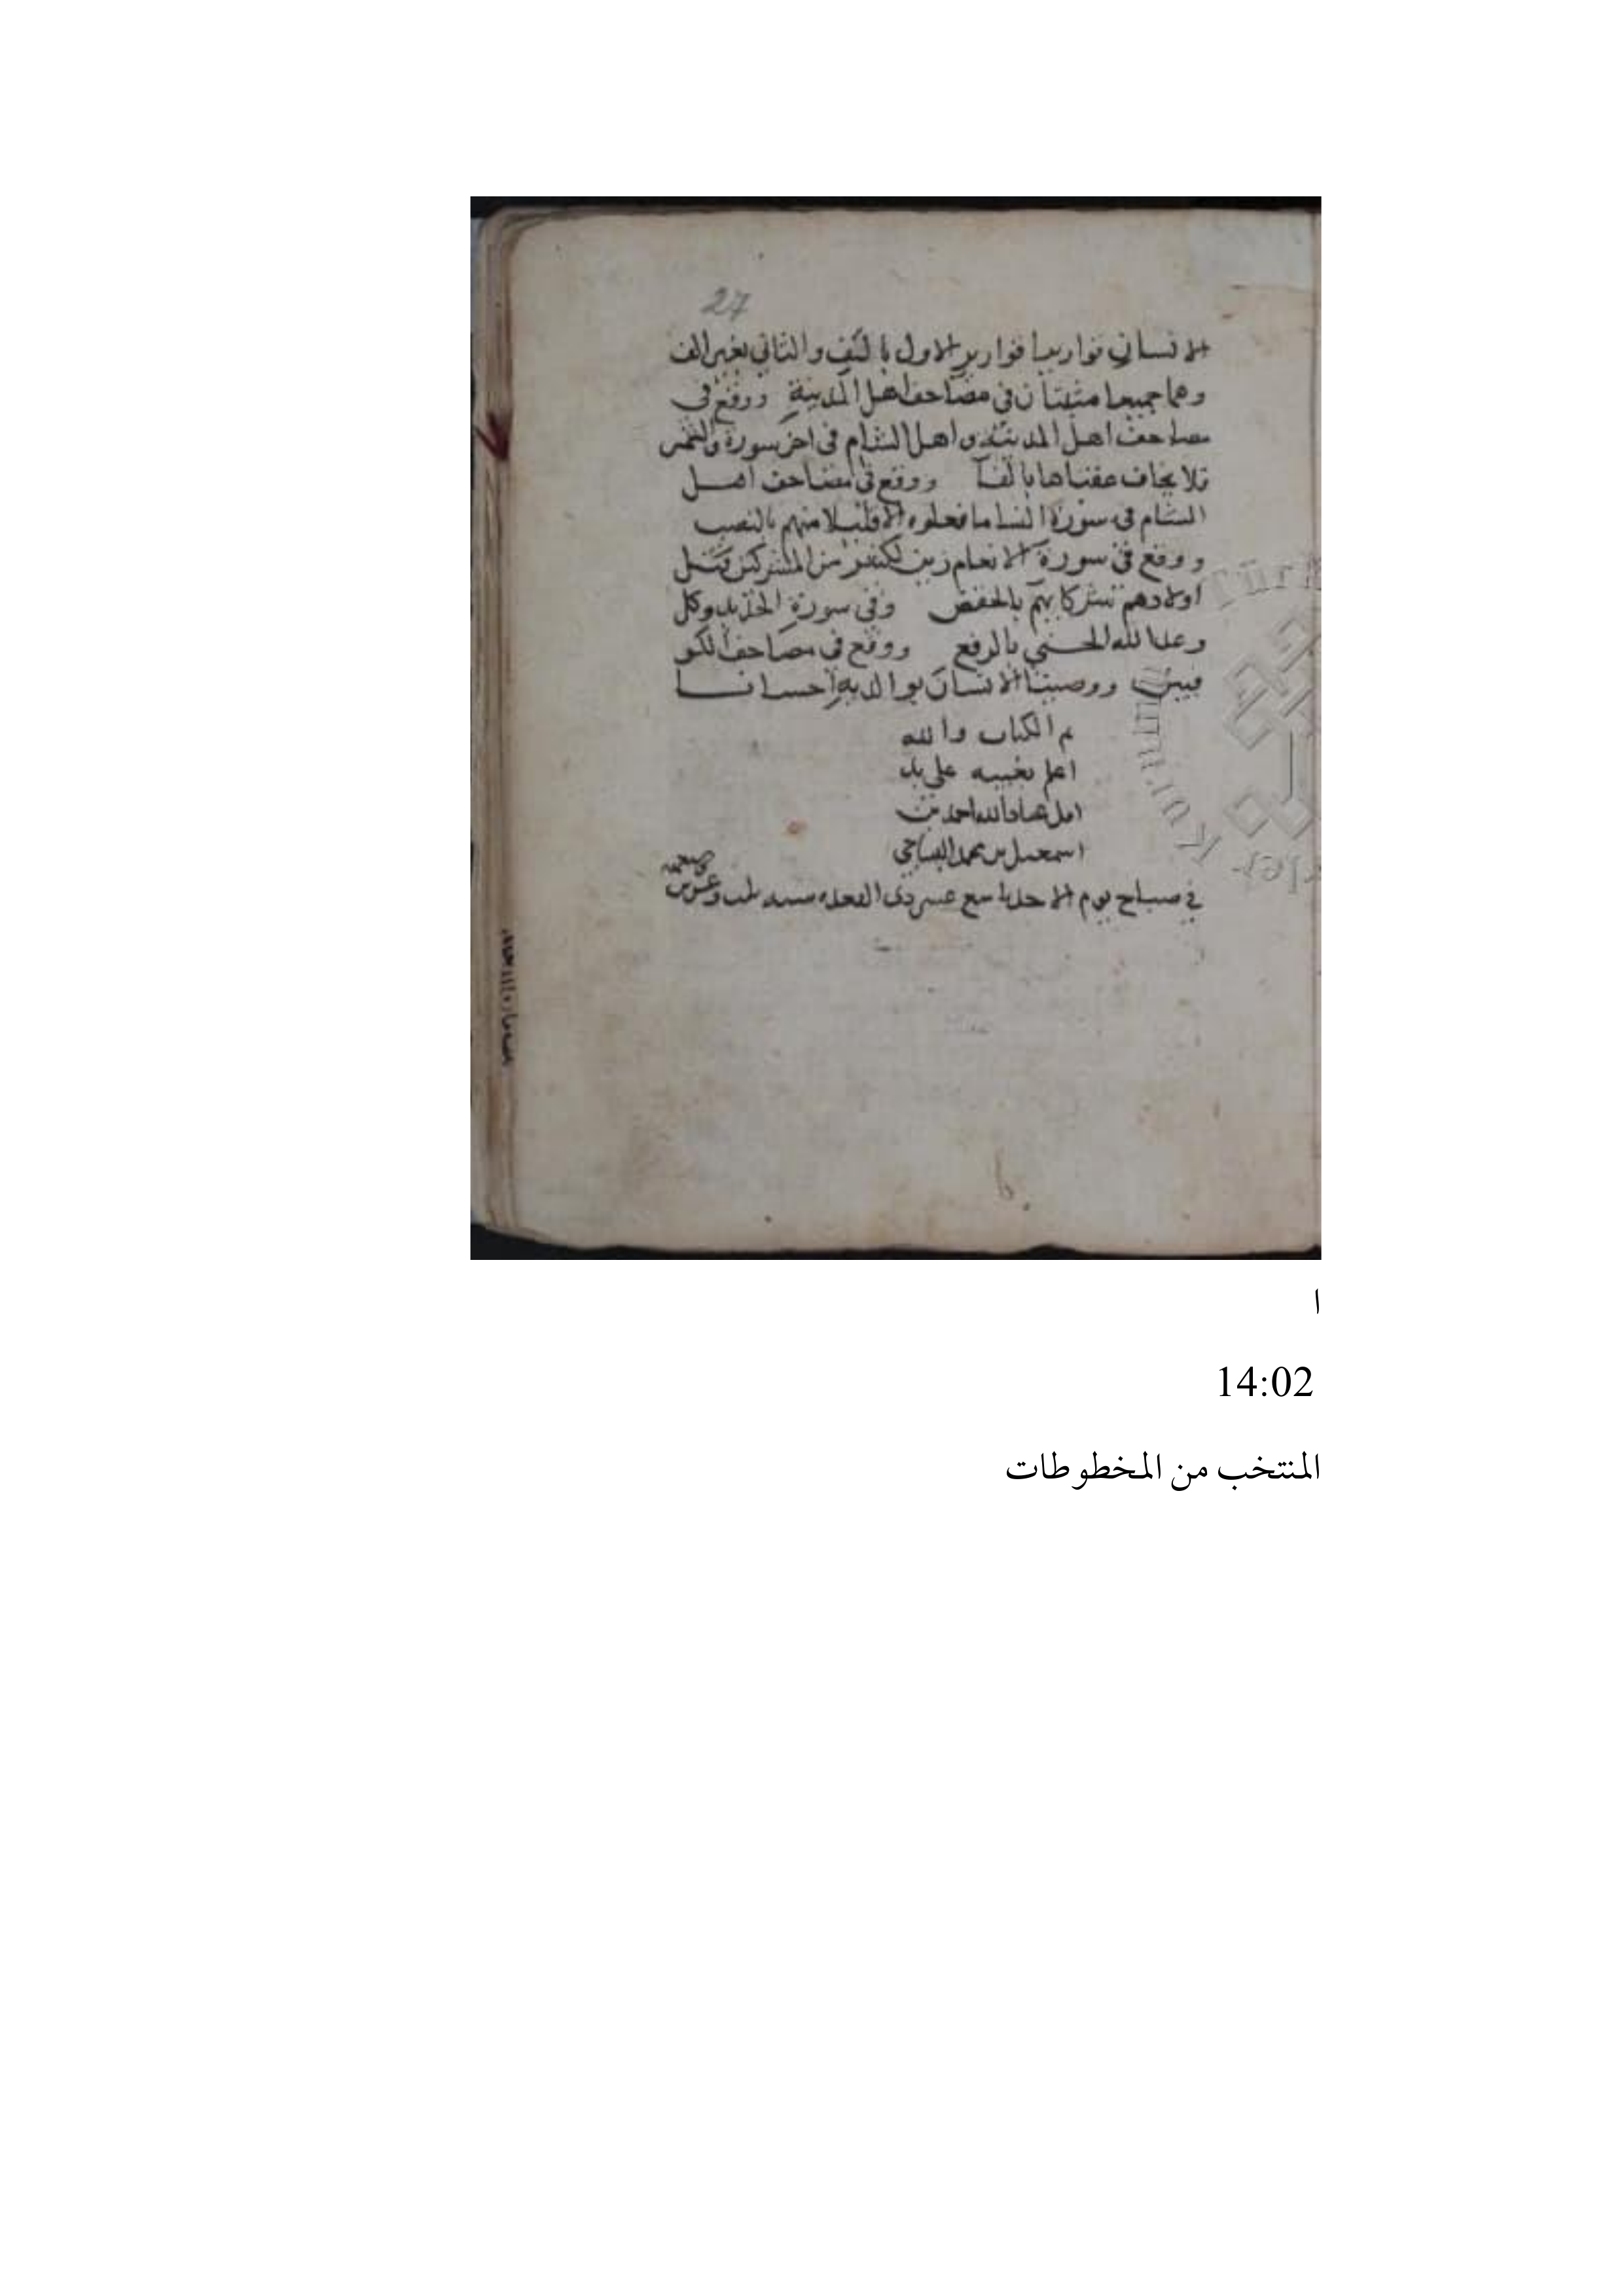 27
الانسان قواريرا قوارير الاول بالف والثاني بغير الف
وهما جميعا مثبتان في مصاحف اهل المدينة ووقع في
مصاحف اهل المدينة واهل الشام في اخر سورة والشمس
فلا يخاف عقباها بالفا ووقع في مصاحف اهل
الشام في سورة النسا ما فعلوه الا قليلا منهم بالنصب
ووقع في سورة الانعام زين لكثير من المشركين قتل
اولادهم شركايهم بالخفض وفي سورة الحديد وكل
وعد الله الحسنى بالرفع ووقع في مصاحف الكو
فيين ووصينا الانسان بوالديه احسانا
تم الكتاب والله
اعلم بغيبه على يد
اقل عباد الله احمد بن
اسمعيل بن محمد
في صباح يوم الاحد تاسع عشر ذي القعده سنه
ا
14:02
المنتخب من المخطوطات